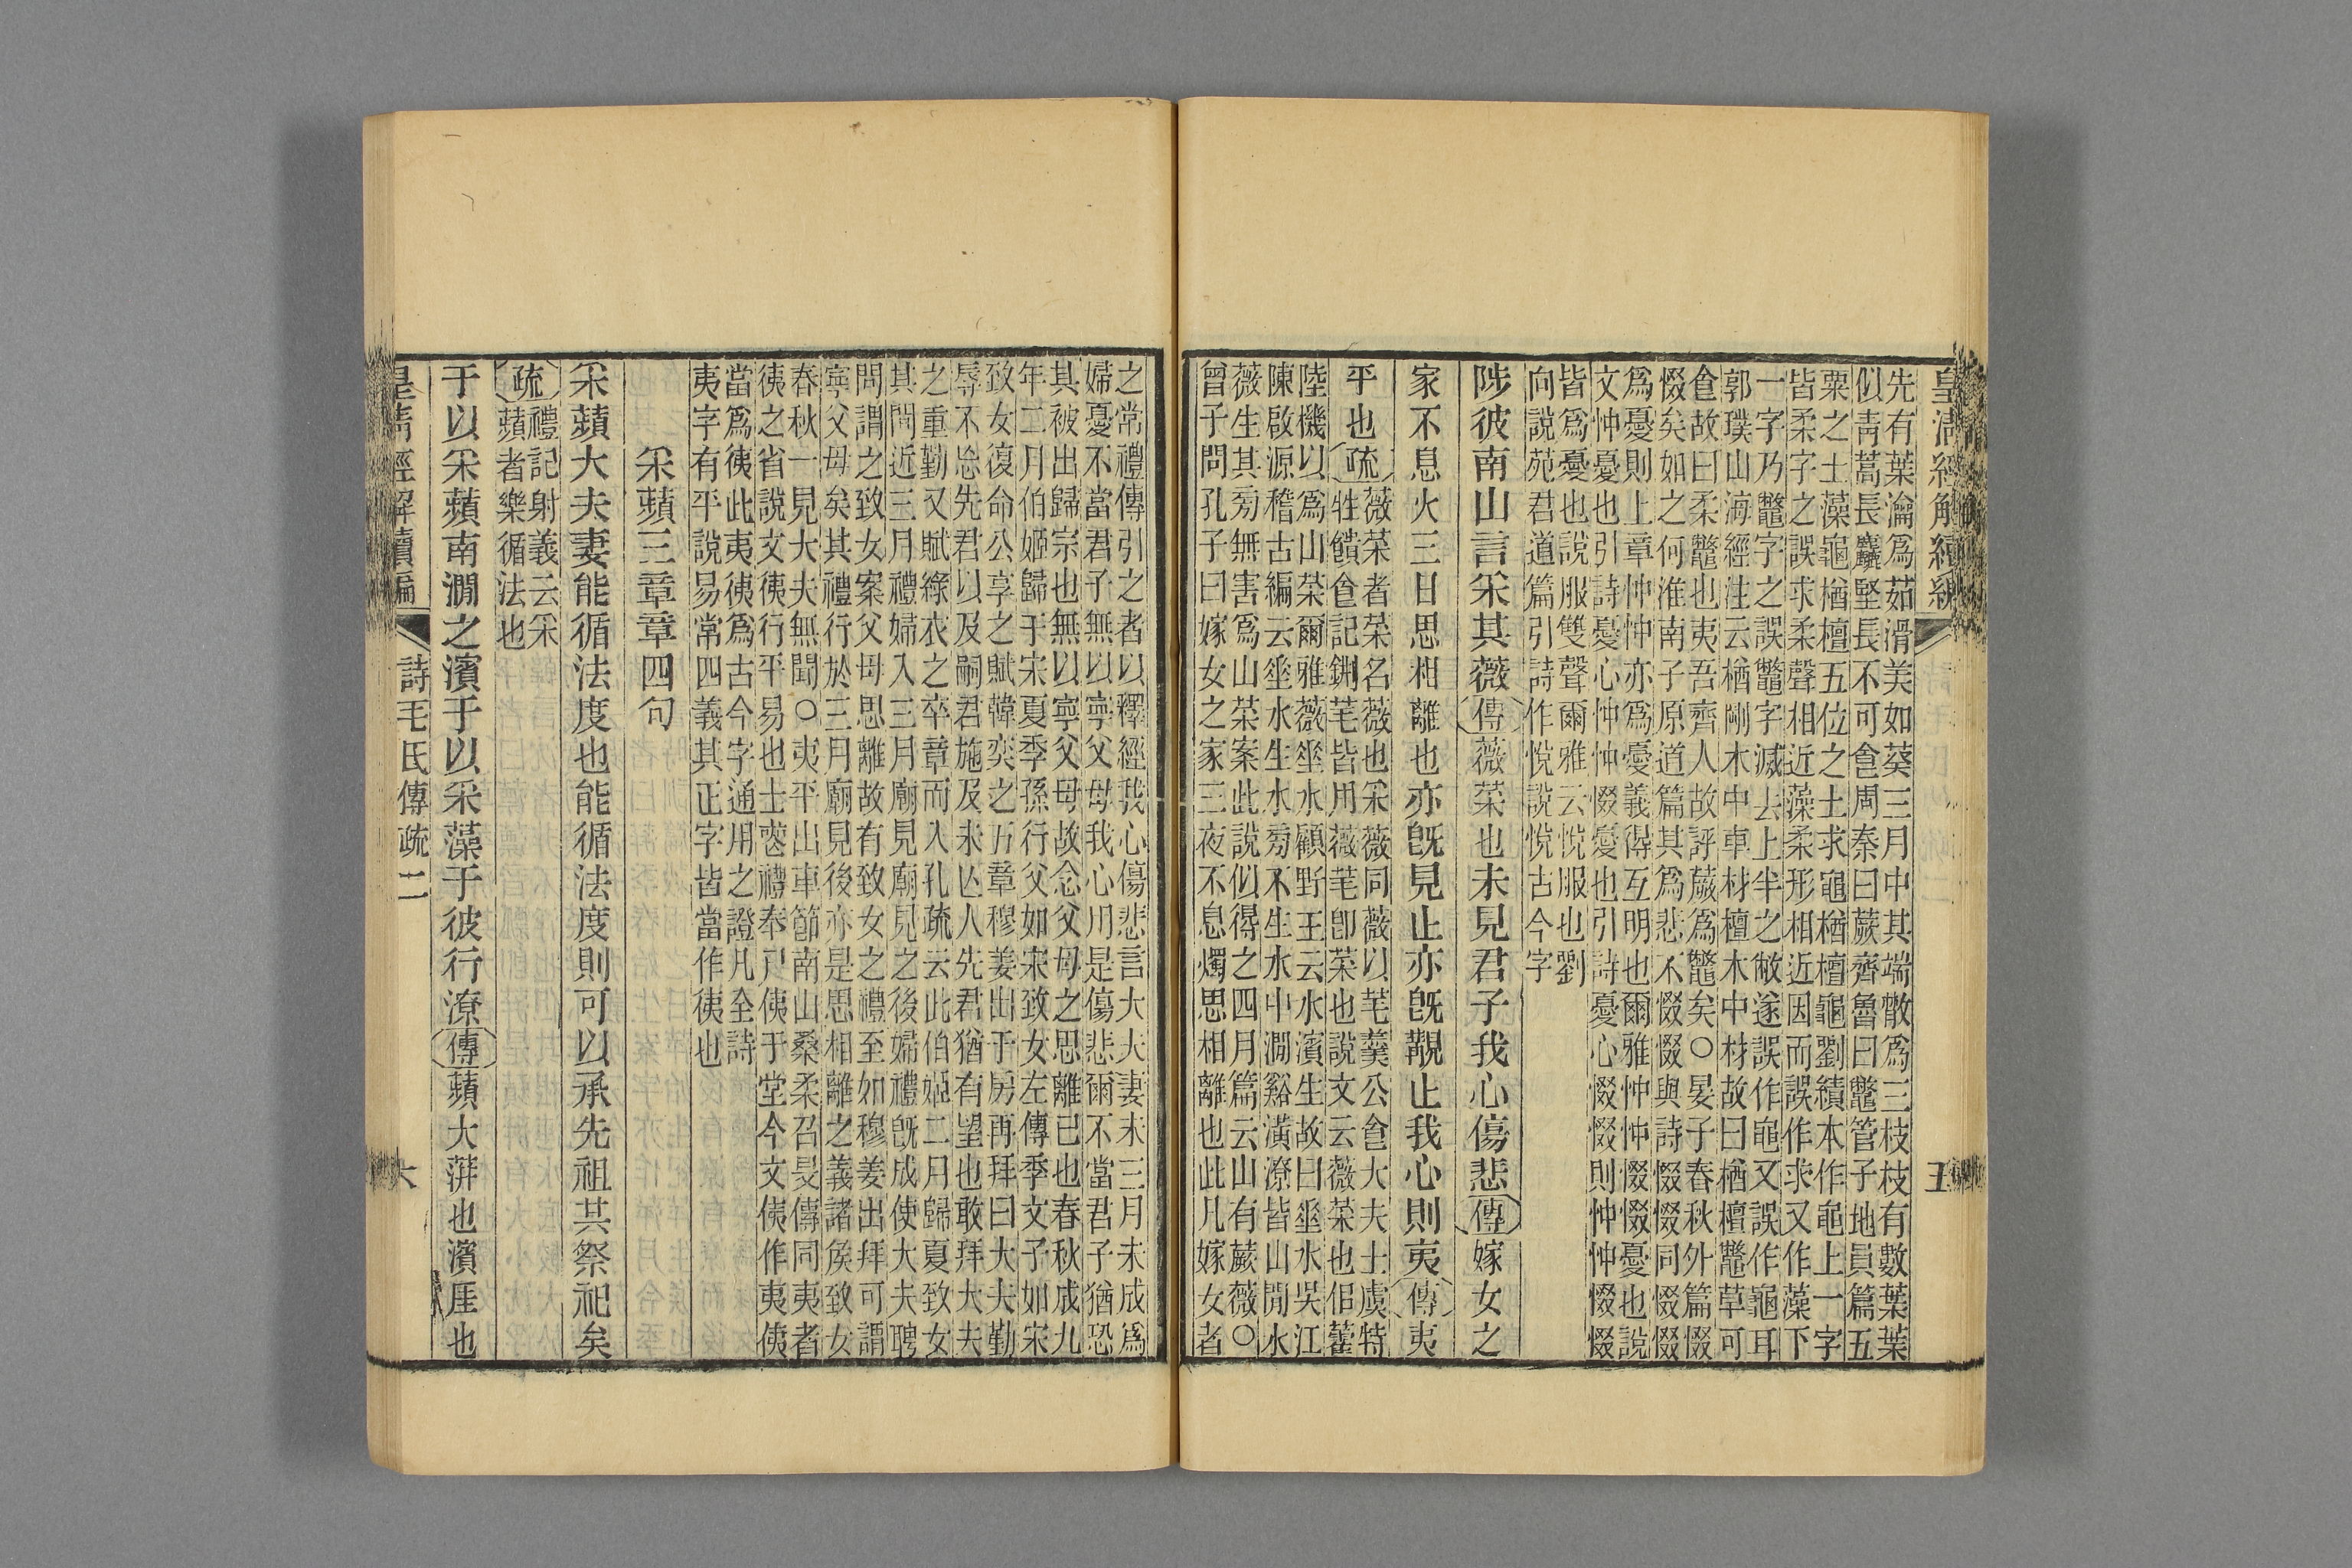 皇清經解續編
五
先有葉瀹爲茹滑美如葵三月中其端散爲三枝枝有數葉葉
似靑蒿長麤堅長不可食周秦曰蕨齊魯曰虌管子地員篇五
粟之土藻龜楢檀五位之土求龜楢檀龜劉績本作黽上一字
皆柔字之誤求柔聲相近藻柔形相近因而誤作求又作藻下
一字乃虌字之誤虌字滅去上半之敝遂誤作黽又誤作龜耳
郭璞山海經注云楢剛木中車材檀木中材故曰楢檀虌草可
食故曰柔虌也夷吾齊人故評蕨爲虌矣○晏子春秋外篇惙
惙矣如之何淮南子原道篇其爲悲不惙惙與詩惙惙同惙惙
爲憂則上章忡忡亦爲憂義得互明也爾雅忡忡惙惙憂也說
文忡憂也引詩憂心忡忡惙憂也引詩憂心惙惙則忡忡惙惙
皆爲憂也說服雙聲爾雅云悅服也劉
向說苑君道篇引詩作悅說悅古今字
陟彼南山言采其薇傳薇菜也未見君子我心傷悲傳嫁女之
家不息火三日思相離也亦旣見止亦旣覯止我心則夷傳夷
平也疏薇菜者菜名薇也采薇同薇以芼羹公食大夫士虞特
牲饋食記鉶芼皆用薇芼卽菜也說文云薇菜也佀藿
陸機以爲山菜爾雅薇垂水顧野王云水濱生故曰垂水吳江
陳啟源稽古編云垂水生水旁不生水中澗谿潢潦皆山閒水
薇生其旁無害爲山菜案此說似得之四月篇云山有蕨薇○
曾子問孔子曰嫁女之家三夜不息燭思相離也此凡嫁女者
之常禮傳引之者以釋經我心傷悲言大夫妻未三月未成爲
婦憂不當君子無以寧父母我心用是傷悲爾不當君子猶恐
其被出歸宗也無以寧父母故念父母之思離已也春秋成九
年二月伯姬歸于宋夏季孫行父如宋致女左傳季文子如宋
致女復命公享之賦韓奕之五章穆姜出于房再拜曰大夫勤
辱不忘先君以及嗣君施及未亾人先君猶有望也敢拜大夫
之重勤又賦綠衣之卒章而入孔疏云此伯姬二月歸夏致女
其閒近三月禮婦入三月廟見廟見之後婦禮旣成使大夫聘
問謂之致女案父母思離故有致女之禮至如穆姜出拜可謂
寧父母矣其禮行於三月廟見後亦是思相離之義諸矦致女
春秋一見大夫無聞○夷平出車節南山桑柔召旻傳同夷者
徺之省說文徺行平易也士䘮禮奉尸侇于堂今文侇作夷侇
當爲徺此夷徺爲古今字通用之證凡全詩
夷字有平說易常四義其正字皆當作徺也
采蘋三章章四句
采蘋大夫妻能循法度也能循法度則可以承先祖共祭祀矣
疏禮記射義云采
蘋者樂循法也
于以采蘋南澗之濱于以采藻于彼行潦傳蘋大蓱也濱厓也
皇淸經解續編
詩毛氏傳疏二
六